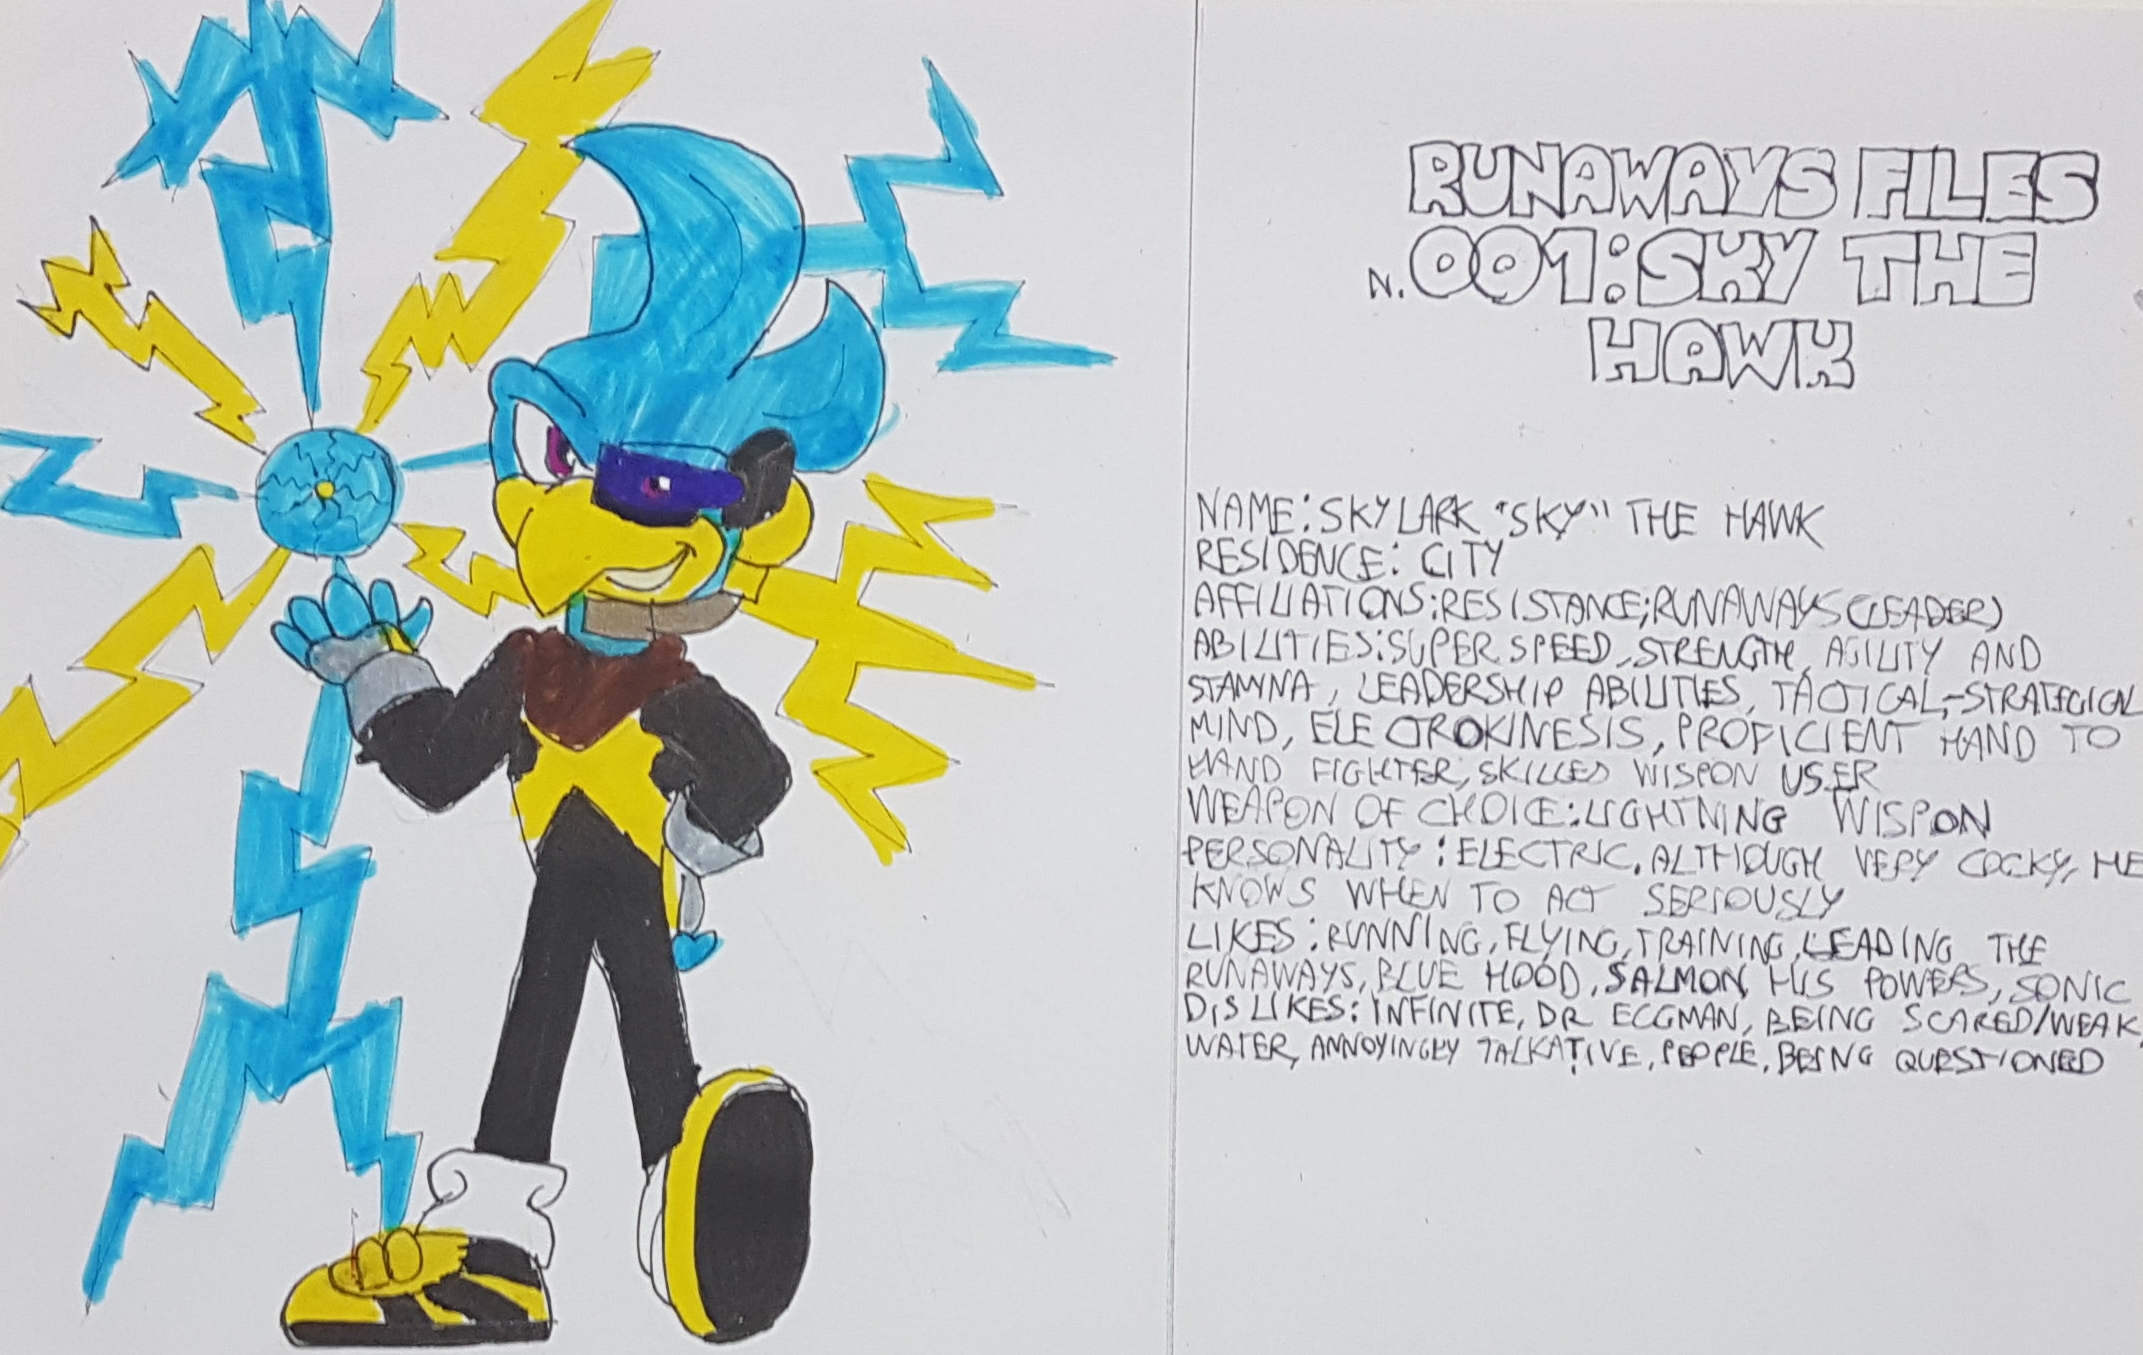 RUNAWAYS FILES
N.001:SKY THE
HAWK
NAME:SKYLARK "SKY" THE HAWK
RESIDENCE: CITY
AFFILIATIONS:RESISTANCE;RUNAWAYS(LEADER)
ABILITIES:SUPER SPEED, STRENGTH, AGILITY AND
STAMINA, LEADERSHIP ABILITIES, TACTICAL-STRATEGICAL
MIND, ELECTROKINESIS, PROFICIENT HAND TO
HAND FIGHTER, SKILLED WISPON USER
WEAPON OF CHOICE:LIGHTNING WISPON
PERSONALITY: ELECTRIC, ALTHOUGH VERY COCKY, HE
KNOWS WHEN TO ACT SERIOUSLY
LIKES: RUNNING, FLYING, TRAINING, LEADING THE
RUNAWAYS, BLUE HOOD, SALMON, HIS POWERS, SONIC
DISLIKES: INFINITE, DR EGGMAN, BEING SCARED/WEAK,
WATER, ANNOYINGLY TALKATIVE, PEOPLE, BEING QUESTIONED